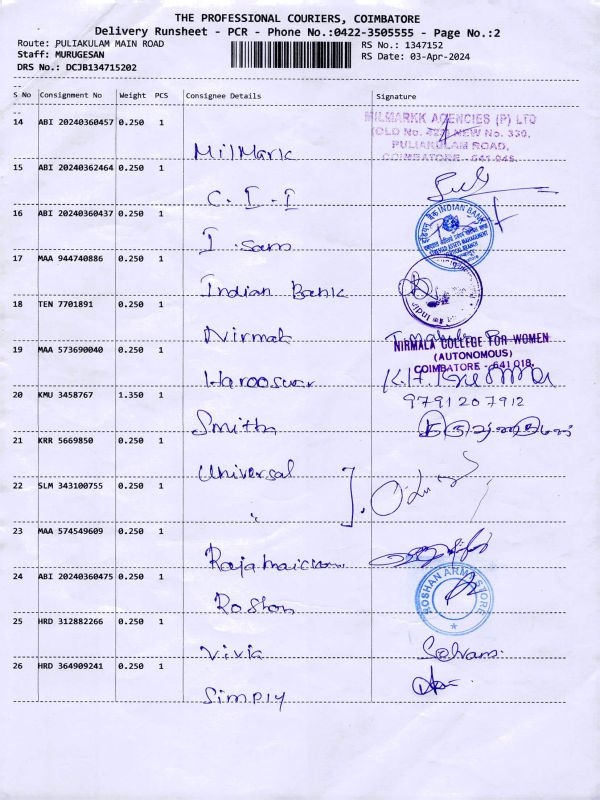 THE PROFESSIONAL COURIERS, COIMBATORE
Delivery Runsheet - PCR - Phone No.:0422-3505555 - Page No.:2
Route: PULIAKULAM MAIN ROAD
RS No.: 1347152
Staff: MURUGESAN
RS Date: 03-Apr-2024
DRS No.: DCJB134715202
S No Consignment No Weight PCS Consignee Details Signature
14 ABI 20240360457 0.250 1
MilMark
MILMARKK AGENCIES (P) LTD
(OLD No. 427) NEW No. 330,
PULIAKULAM ROAD,
COIMBATORE - 641 045.
15 ABI 20240362464 0.250 1
C. I. I
16 ABI 20240360437 0.250 1
I. sam
INDIAN BANK
17 MAA 944740886 0.250 1
Indian Bank
18 TEN 7701891 0.250 1
Nirmala
NIRMALA COLLEGE FOR WOMEN
(AUTONOMOUS)
COIMBATORE - 641 018.
19 MAA 573690040 0.250 1
9791207912
20 KMU 3458767 1.350 1
Smitha
21 KRR 5669850 0.250 1
Universal
22 SLM 343100755 0.250 1
"
23 MAA 574549609 0.250 1
24 ABI 20240360475 0.250 1
Roshan
ROSHAN ARMY STORE
25 HRD 312882266 0.250 1
Vivia
Selvam.
26 HRD 364909241 0.250 1
Simply